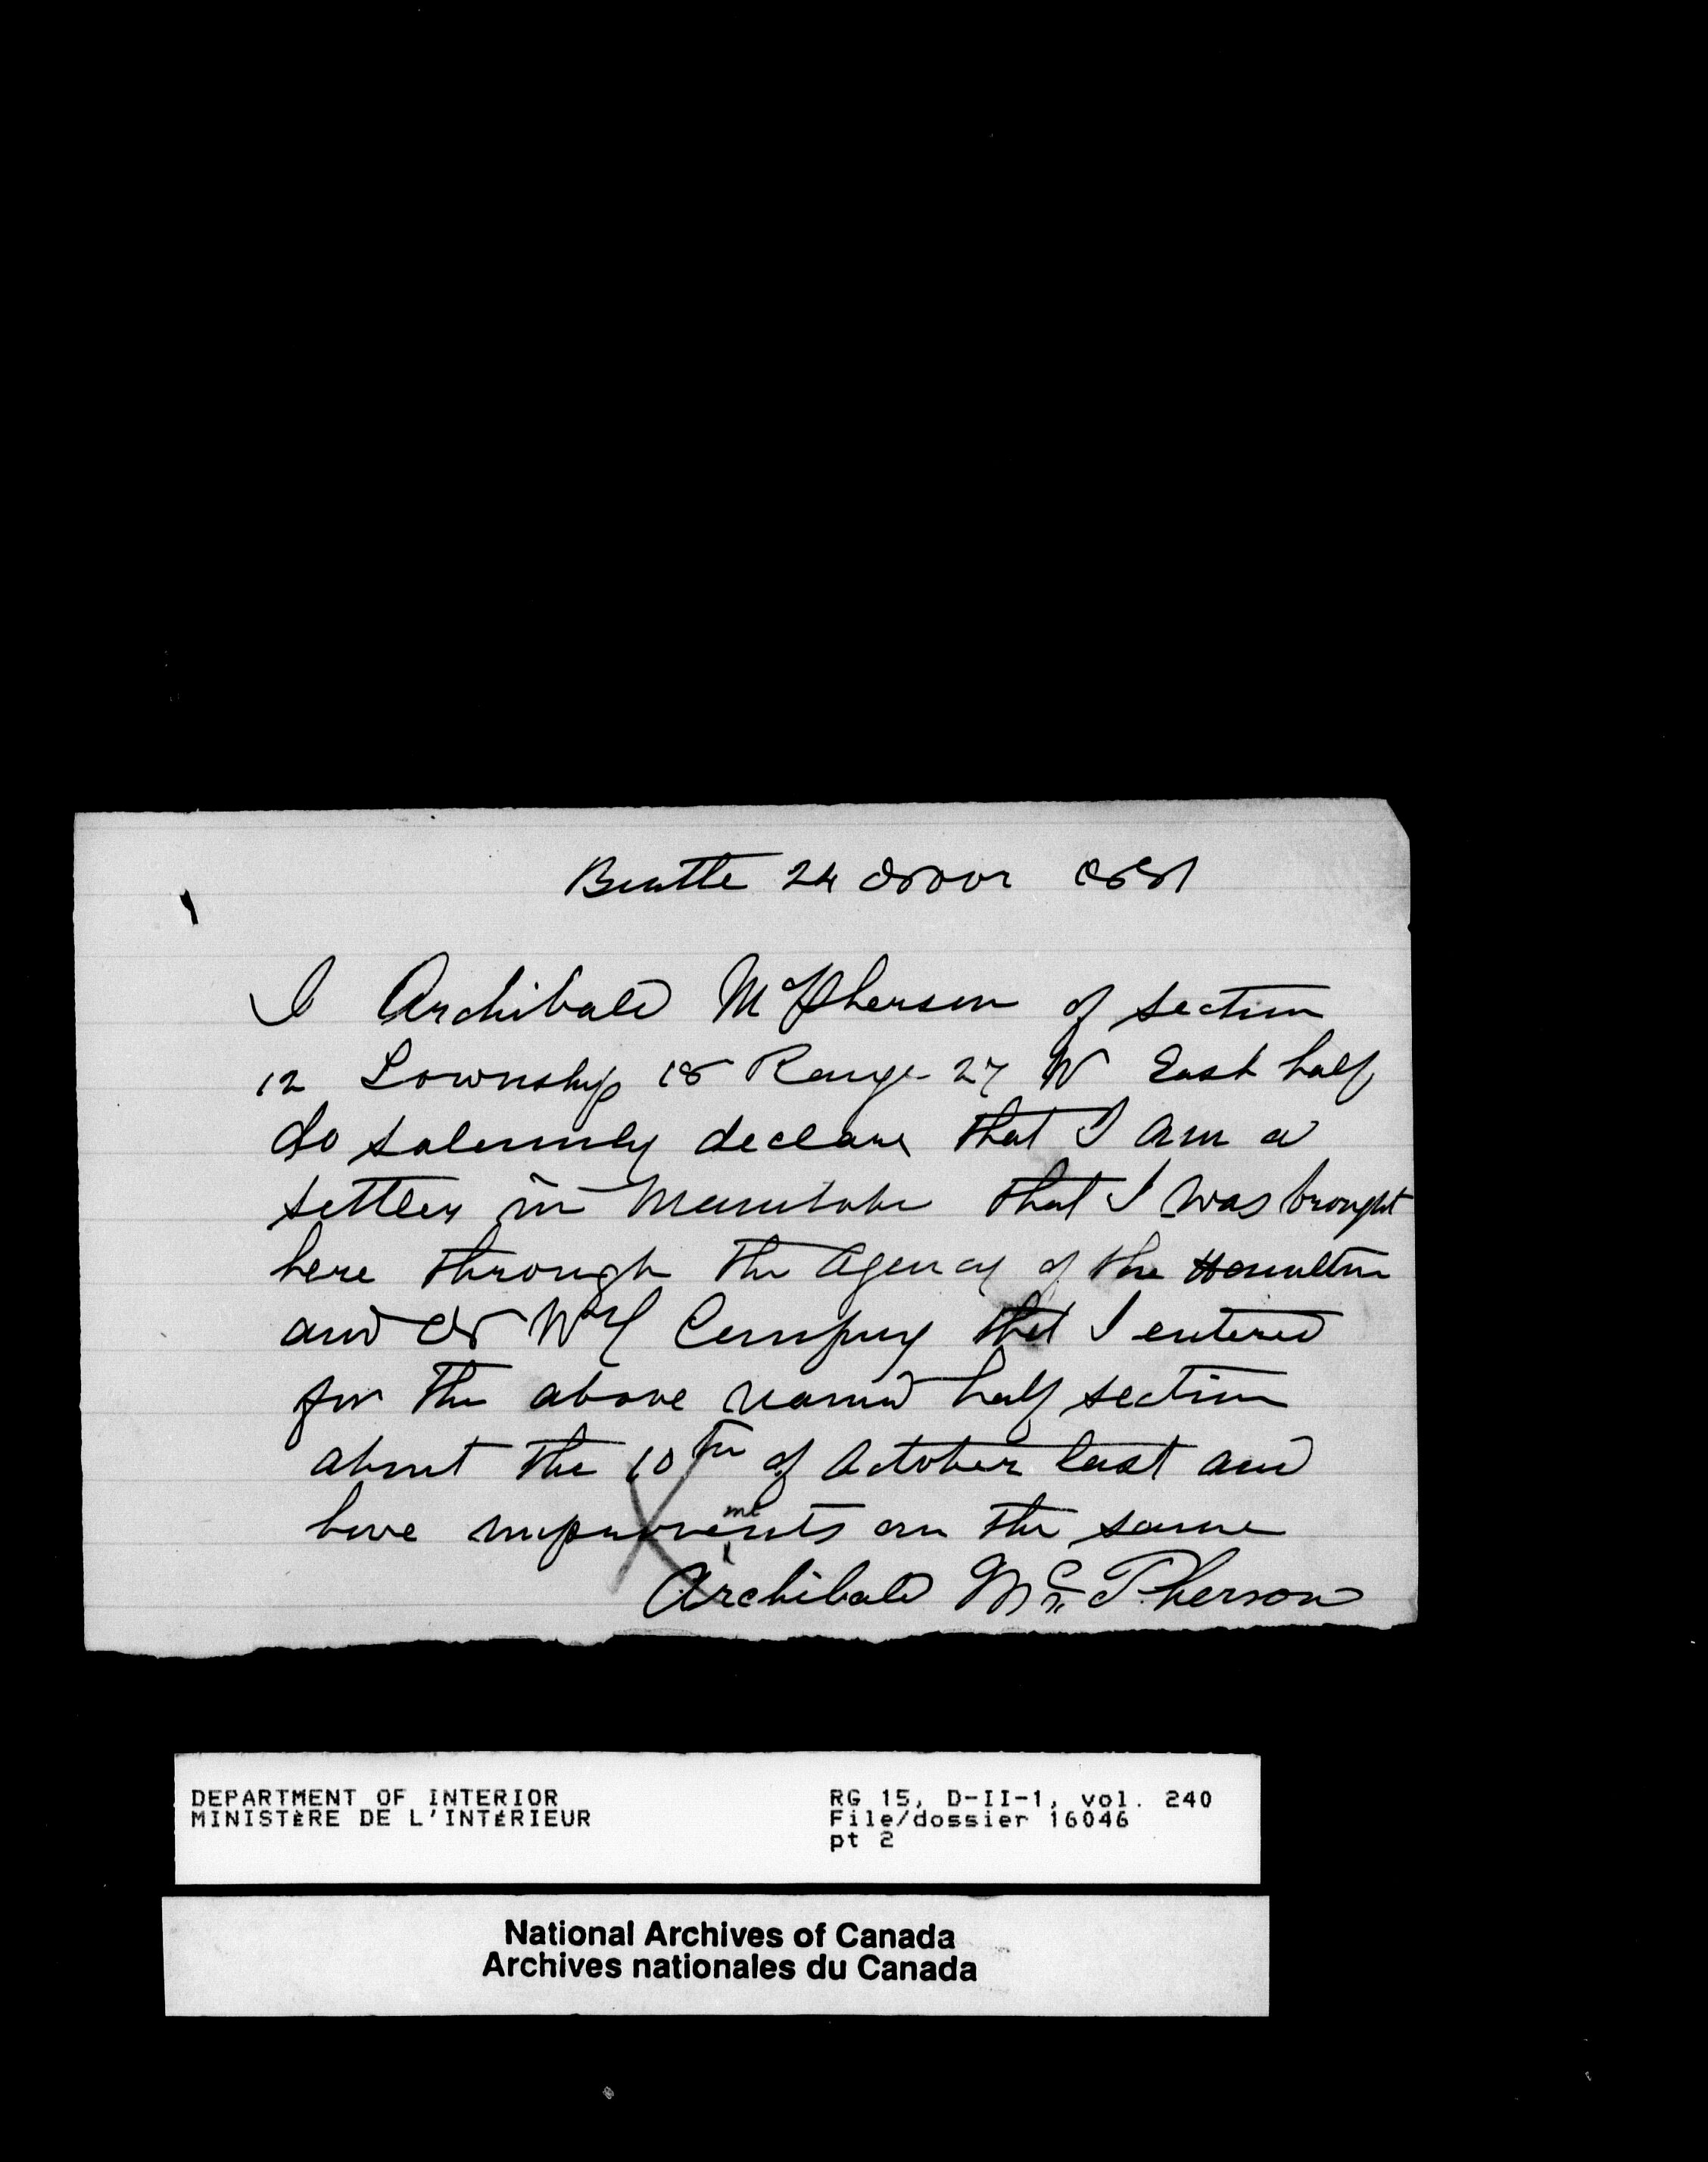 Beattle 24 Novr 1881
I Archibald McPherson of section
12 Township 18 Range 27 W East half
do solemnly declare that I am a
settler in Manitoba that I was brought
here through the agency of the Hamilton
and N W C Company that I entered
for the above named half section
about the 10th of October last and
have improvements on the same
Archibald McPherson
DEPARTMENT OF INTERIOR
MINISTÈRE DE L'INTÉRIEUR
RG 15, D-II-1, vol. 240
File/dossier 16046
pt 2
National Archives of Canada
Archives nationales du Canada